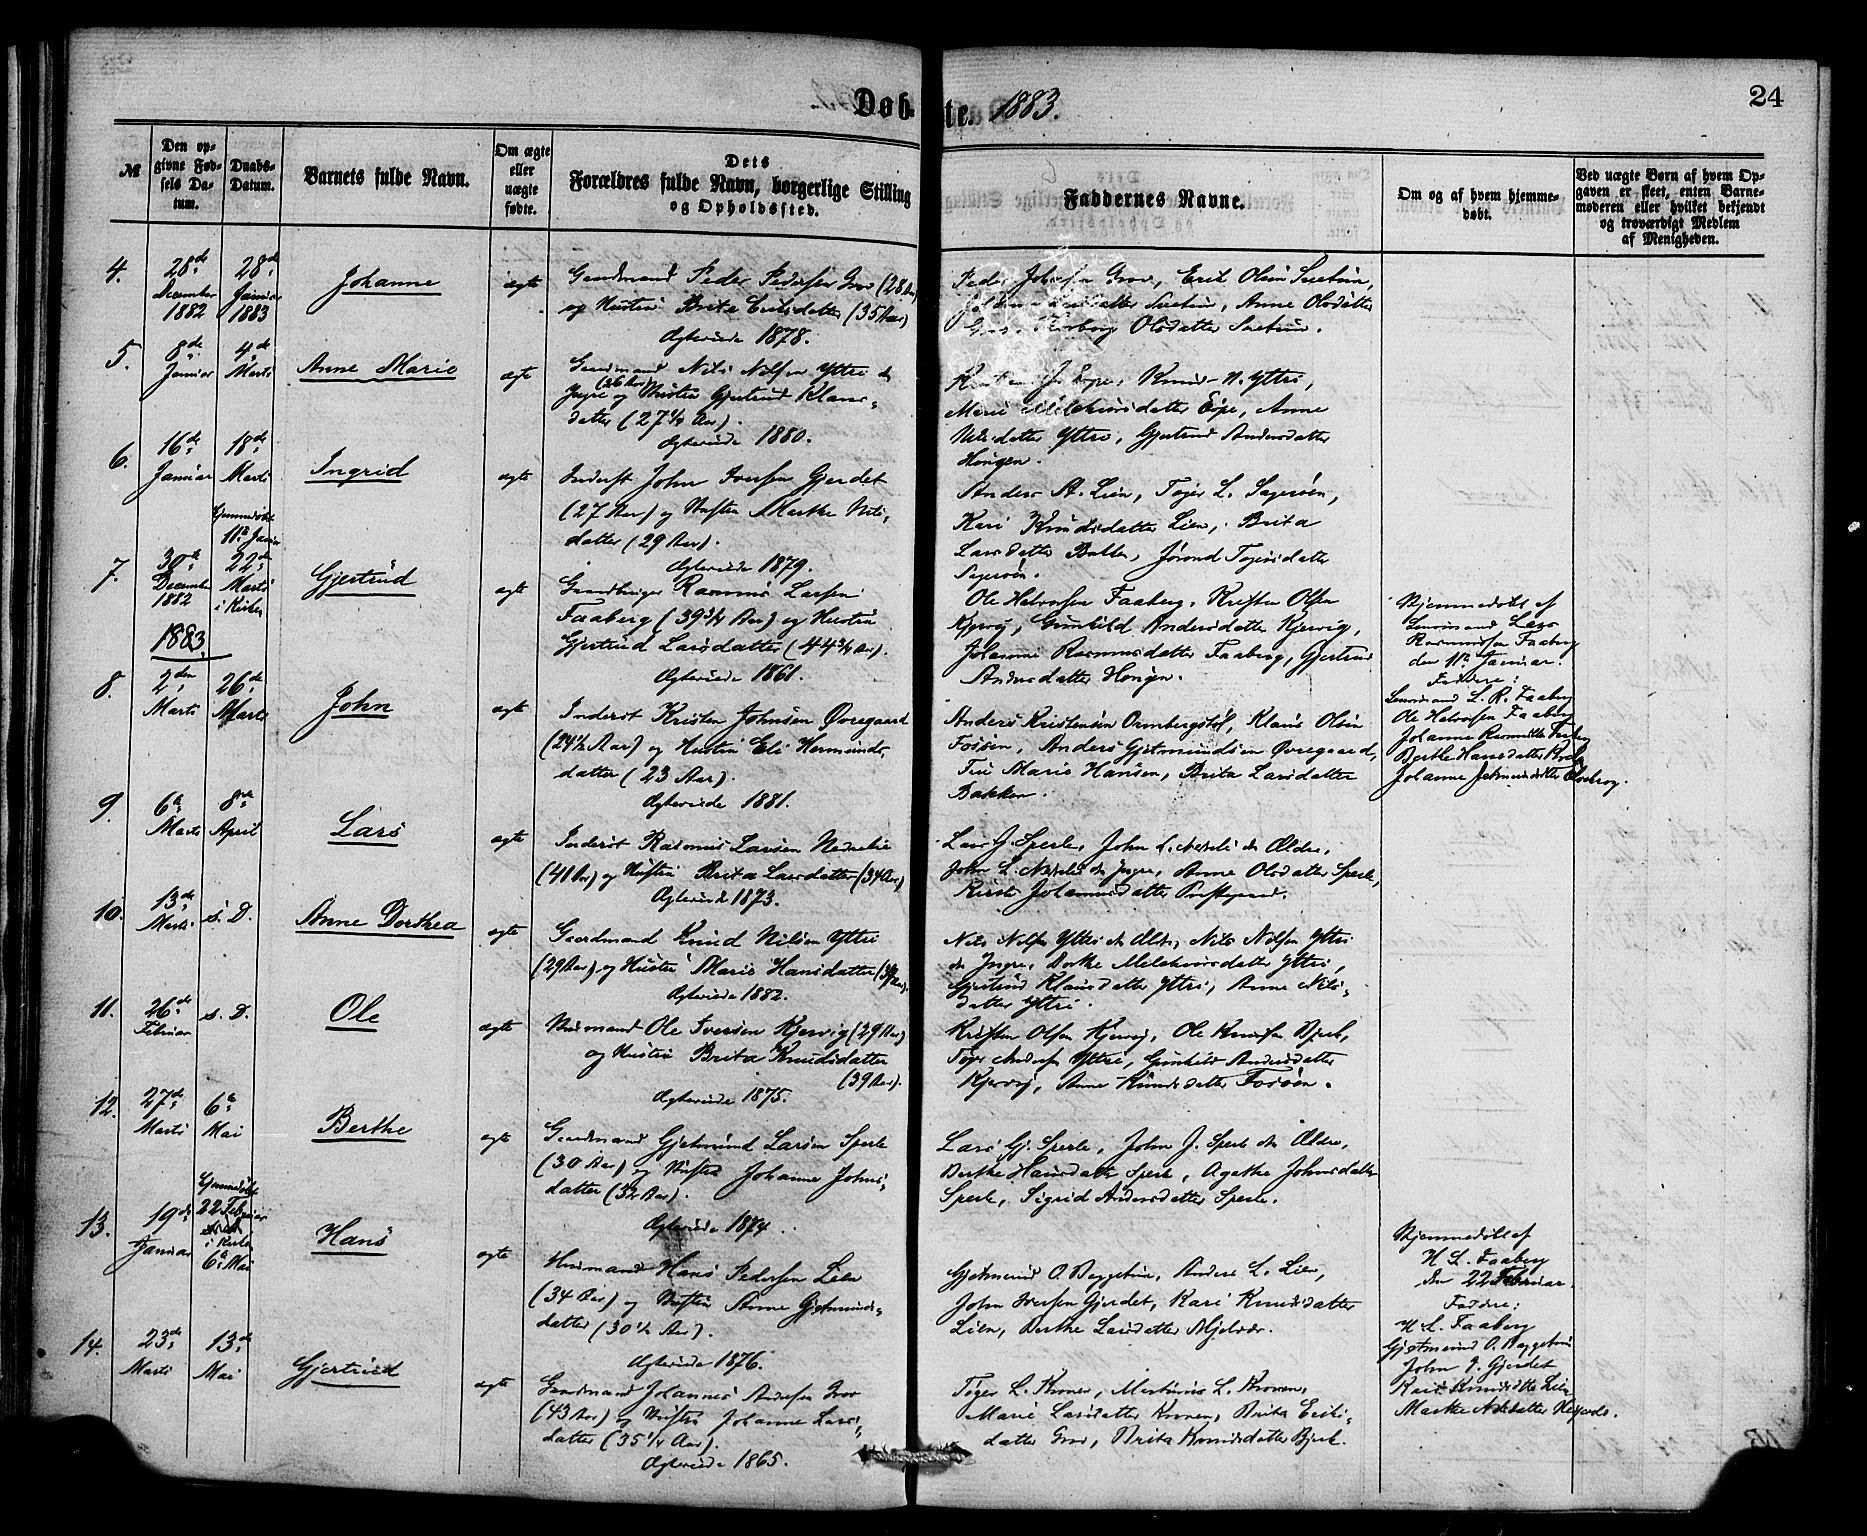 Døbte. 1883.
24
№
Den opgivne Fødsels Datum.
Daabs-Datum.
Barnets fulde Navn.
Om ægte eller uægte fødte.
Dets Forældres fulde Navn, borgerlige Stilling og Opholdssted.
Faddernes Navne.
Om og af hvem hjemmedøbt.
Ved uægte Børn af hvem Opgaven er skeet, enten Barnemoderen eller hvilket bekjendt og troværdigt Medlem af Menigheden.
4.
28de December 1882
28de Januar 1883
Johanne
ægte
Gaardmand Peder Pedersen Grov (28 Aar)
og Hustru Brita Eriksdatter (35 Aar)
Ægteviede 1878.
Peder Johnsen Grov, Erik Olsen Suetun,
Suetun, Anne Olsdatter
Olsdatter Suetun.
5.
8de Januar
4de Marts
Anne Marie
ægte
Gaardmand Nils Nilsen Yttri den
Yngre (26 Aar) og Hustru Gjertrud Klaus-
datter (27 1/2 Aar).
Ægteviede 1880.
J. Espe, Knud N. Yttri,
Marie Melchiorsdatter Espe, Anne
Nilsdatter Yttri, Gjertrud Andersdatter
Haugen.
6.
16de Januar
18de Marts
Ingrid
ægte
Inderst John Iversen Gjerdet
(27 Aar) og Hustru Marthe Nils-
datter (29 Aar).
Ægteviede 1879.
Anders A. Lien, Tøger L. Sagerøen,
Kari Knudsdatter Lien, Brita
Larsdatter Bakken, Jørond Tøgersdatter
Sagerøen.
7.
30te December 1882
Hjemmedøbt 11te Januar
22de Marts i Kirken
Gjertrud
ægte
Gaardbruger Rasmus Larsen
Faaberg (39 3/4 Aar) og Hustru
Gjertrud Larsdatter (44 3/4 Aar).
Ægteviede 1861.
Ole Halvorsen Faaberg, Kristen Olsen
Kjervig, Gunhild Andersdatter Kjervig,
Johanne Rasmusdatter Faaberg, Gjertrud
Andersdatter Haugen.
Hjemmedøbt af
Lensmand Lars
Rasmussen Faaberg
den 11te Januar.
Faddre:
Lensmand L. R. Faaberg
Ole Halvorsen Faaberg
Johanne Rasmusdtr Faaberg
Berthe Hansdatter
Johanne
1883.
8.
2den Marts
26de Marts
John
ægte
Inderst Kristen Johnsen Øvregaard
(24 1/2 Aar) og Hustru Eli Hermunds-
datter (23 Aar).
Ægteviede 1881.
Anders Kristensen Ormbergstøl, Klaus Olsen
Fossøen, Anders Gjetmundsen Øvregaard,
Fru Marie Hansen, Brita Larsdatter
Bakken.
9.
6te Marts
8de April
Lars
ægte
Inderst Rasmus Larsen Nedrelie
(41 Aar) og Hustru Brita Larsdatter (34 Aar)
Ægteviede 1873.
Lars J. Sperle, John L. Nedrelie den Ældre,
John L. Nedrelie den Yngre, Anne Olsdatter Sperle,
Kirsti Johannesdatter Prestegaard.
10.
13de Marts
s. D.
Anne Dorthea
ægte
Gaardmand Knud Nilsen Yttri
(29 Aar) og Hustru Marie Hansdatter
Ægteviede 1882.
Nils Nilsen Yttri den Ældre, Nils Nilsen Yttri
den Yngre, Dorthe Melchiorsdatter Yttri,
Gjertrud Klausdatter Yttri, Anne Nils-
datter Yttri.
11.
26de Februar
s. D.
Ole
ægte
Husmand Ole Iversen Kjervig (29 Aar)
og Hustru Brita Knudsdatter
(39 Aar).
Ægteviede 1875.
Kristen Olsen Kjervig, Ole Knudsen Bjerk,
Tøger Andersen Yttri, Gunhild Andersdatter
Kjervig, Anne Knudsdatter Fossøen.
12.
27de Marts
6te Mai
Berthe
ægte
Gaardmand Gjetmund Larsen Sperle
(30 Aar) og Hustru Johanne Johns-
datter (32 Aar).
Ægteviede 1874.
Lars Gj. Sperle, John J. Sperle den Ældre,
Berthe Hansdatter Sperle, Agathe Johnsdatter
Sperle, Sigrid Andersdatter Sperle.
13.
19de Januar
Hjemmedøbt 22 Februar
i Kirken
6te Mai
Hans
ægte
Husmand Hans Pedersen Lien
(34 Aar) og Hustru Anne Gjetmunds-
datter (30 1/2 Aar).
Ægteviede 1876.
Gjetmund O. Baggetun, Anders L. Lien,
John Iversen Gjerdet, Kari Knudsdatter
Lien, Berthe Larsdatter Mjelvær.
Hjemmedøbt af
H. L. Faaberg
den 22 Februar.
Faddre:
H. L. Faaberg
Gjetmund O. Baggetun
John I. Gjerdet
Kari Knudsdtr Lien
Marthe Nilsdatter
14.
23de Marts
13de Mai
Gjertrud
ægte
Gaardmand Johannes Andersen Grov
(43 Aar) og Hustru Johanne Lars-
datter (35 1/4 Aar).
Ægteviede 1865.
Tøger L. Kronen, Martinus L. Kronen,
Marie Larsdatter Kronen, Brita Eriks-
datter Grov, Brita Knudsdatter Bjerk.